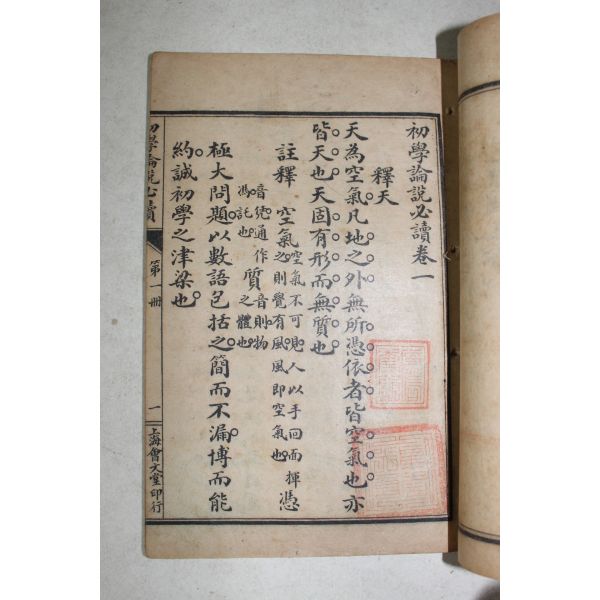 初學論說必讀卷一
釋天
天為空氣。凡地之外無所憑依者皆空氣也。亦
皆天也。天固有形而無質也。
註釋 空氣 空氣不可見人以手向面揮
之則覺有風風即空氣也 憑
通作
馮託也 質 音則物
之體也
極大問題。以數語包括之。簡而不漏。博而能
約。誠初學之津梁也。
初學論說必讀
第一冊
一
上海會文堂印行